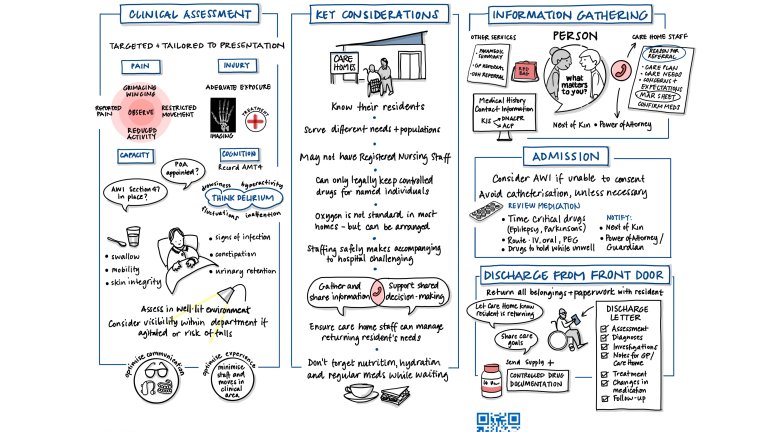 CLINICAL ASSESSMENT
TARGETED + TAILORED TO PRESENTATION
PAIN
GRIMACING
WINCING
REPORTED
PAIN
OBSERVE
RESTRICTED
MOVEMENT
REDUCED
ACTIVITY
INJURY
ADEQUATE EXPOSURE
IMAGING
TREATMENT
CAPACITY
POA
appointed?
AWI Section 47
in place?
COGNITION
Record AMT4
drowsiness hyperactivity
THINK DELIRIUM
fluctuations inattention
• swallow
• mobility
• skin integrity
• signs of infection
• constipation
• urinary retention
Assess in well-lit environment
Consider visibility within department if
agitated or risk of falls
optimise communication
optimise experience
minimise
staff and
moves in
clinical
area
KEY CONSIDERATIONS
CARE
HOME
Know their residents
Serve different needs + populations
May not have Registered Nursing Staff
Can only legally keep controlled
drugs for named individuals
Oxygen is not standard in most
homes - but can be arranged
Staffing safely makes accompanying
to hospital challenging
Gather and
share information
Support shared
decision-making
Ensure care home staff can manage
returning resident's needs
Don't forget nutrition, hydration
and regular meds while waiting
INFORMATION GATHERING
OTHER SERVICES
• PARAMEDIC
SUMMARY
• GP REFERRAL
• OOH REFERRAL
RED
BAG
PERSON
what
matters
to you?
CARE HOME STAFF
• REASON FOR
REFERRAL
• CARE PLAN
• CARE NEEDS
• CONCERNS +
EXPECTATIONS
• MAR SHEET
CONFIRM MEDS
Medical History
Contact Information
KIS
DNACPR
ACP
Next of Kin • Power of Attorney
ADMISSION
Consider AWI if unable to consent
Avoid catheterisation, unless necessary
REVIEW MEDICATION
• Time Critical drugs
(Epilepsy, Parkinsons)
• Route - IV, oral, PEG
• Drugs to hold while unwell
NOTIFY:
• Next of Kin
• Power of Attorney/
Guardian
DISCHARGE FROM FRONT DOOR
Return all belongings + paperwork with resident
Let Care Home know
resident is returning
Share care
goals
Send supply +
CONTROLLED DRUG
DOCUMENTATION
DISCHARGE
LETTER
Assessment
Diagnoses
Investigations
Notes for GP/
Care Home
Treatment
Changes in
medication
Follow-up